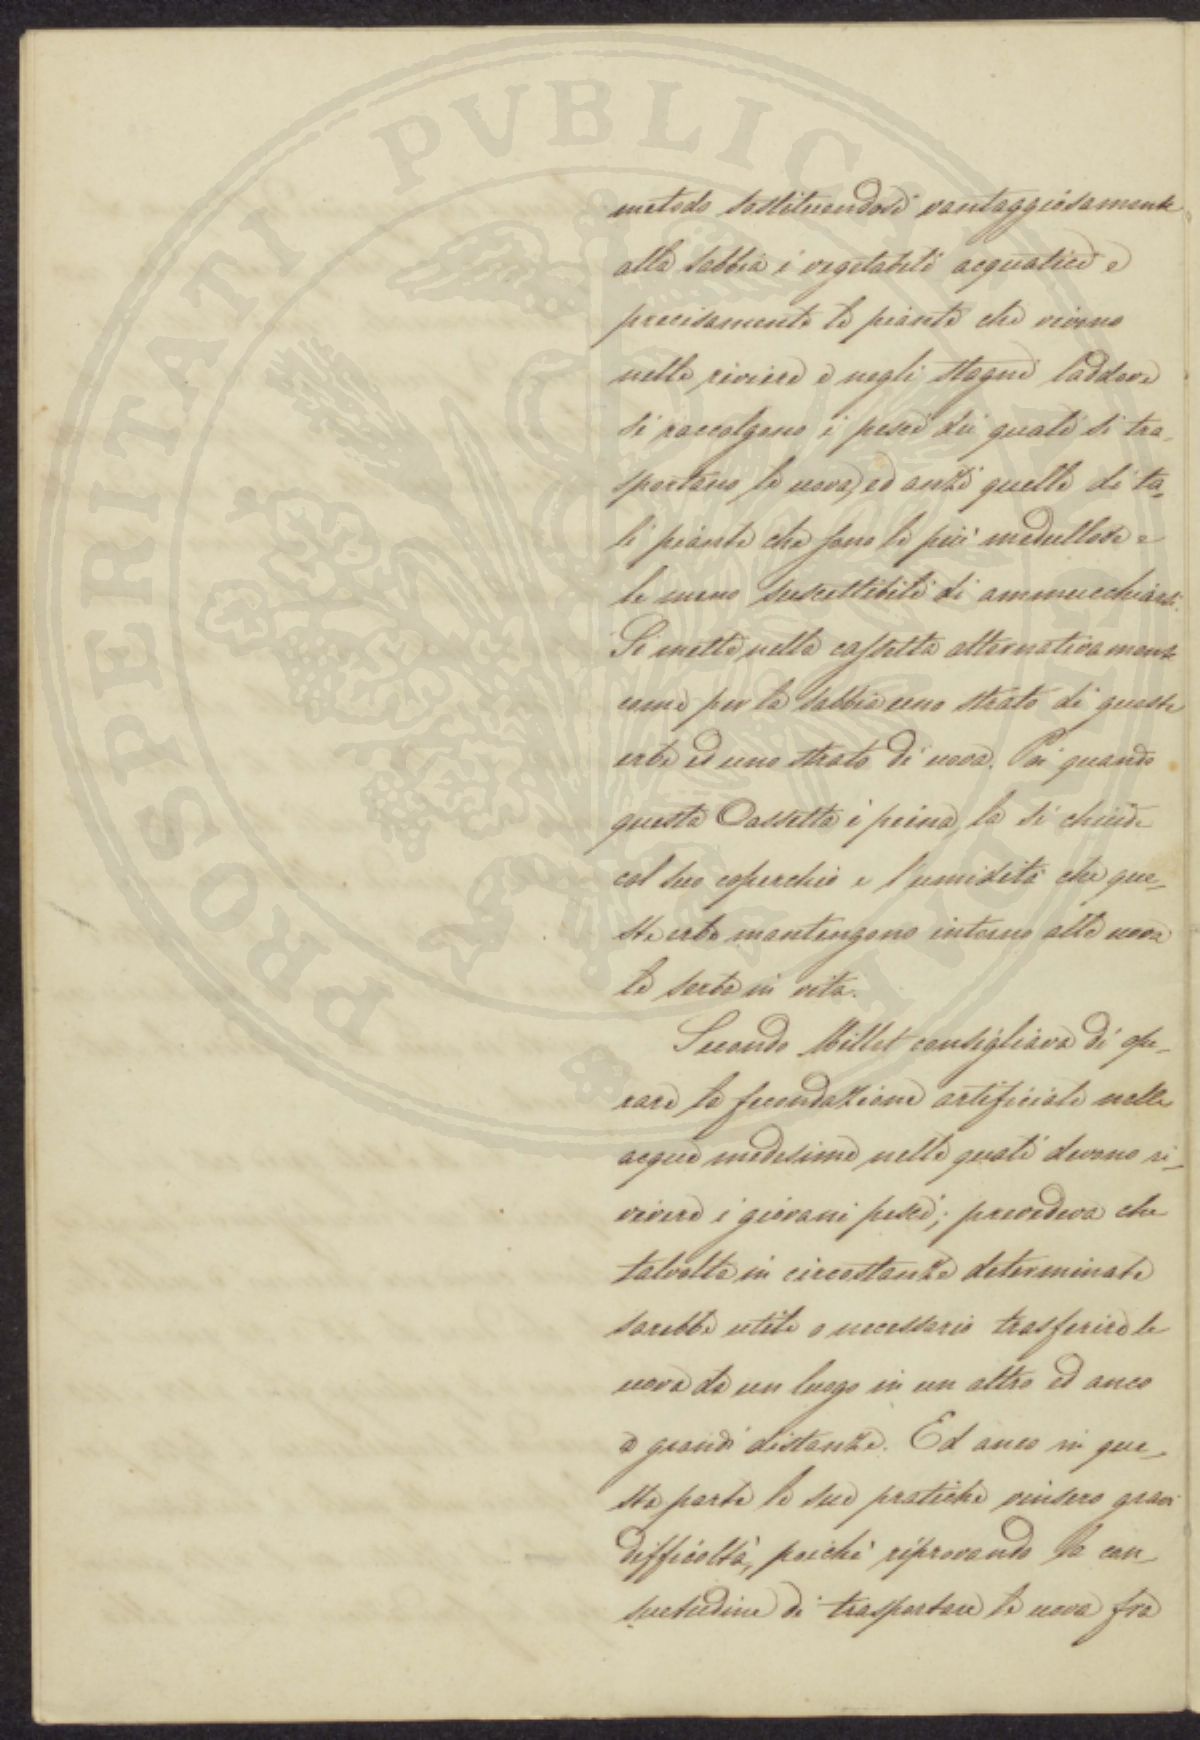 PROSPERITATI PVBLICAE
metodo sostituendosi vantaggiosamente
alla sabbia i vegetabili acquatici e
precisamente le piante che vivono
nelle riviere e negli stagni laddove
si raccolgono i pesci dei quali si tra_
sportano le uova, ed anzi quelle di ta_
li piante che sono le più midullose e
le meno suscettibili di ammucchiarsi.
Si mette nella cassetta alternativamente
come per la sabbia uno strato di queste
erbe ed uno strato di uova. Poi quando
questa Cassetta è peina, la si chiude
col suo coperchio e l'umidità che que_
ste erbe mantengono intorno alle uova
le serba in vita.
Secondo Millet consigliava di ope_
rare la fecondazione artificiale nelle
acque medesime nelle quali devono ri_
vivere i giovani pesci; prevedeva che
talvolta in circostanze determinate
sarebbe utile o necessario trasferire le
uova da un luogo in un altro ed anco
a grandi distanze. Ed anco in que_
sta parte le sue pratiche vinsero gravi
difficoltà, poichè riprovando la con_
suetudine di trasportare le uova fra